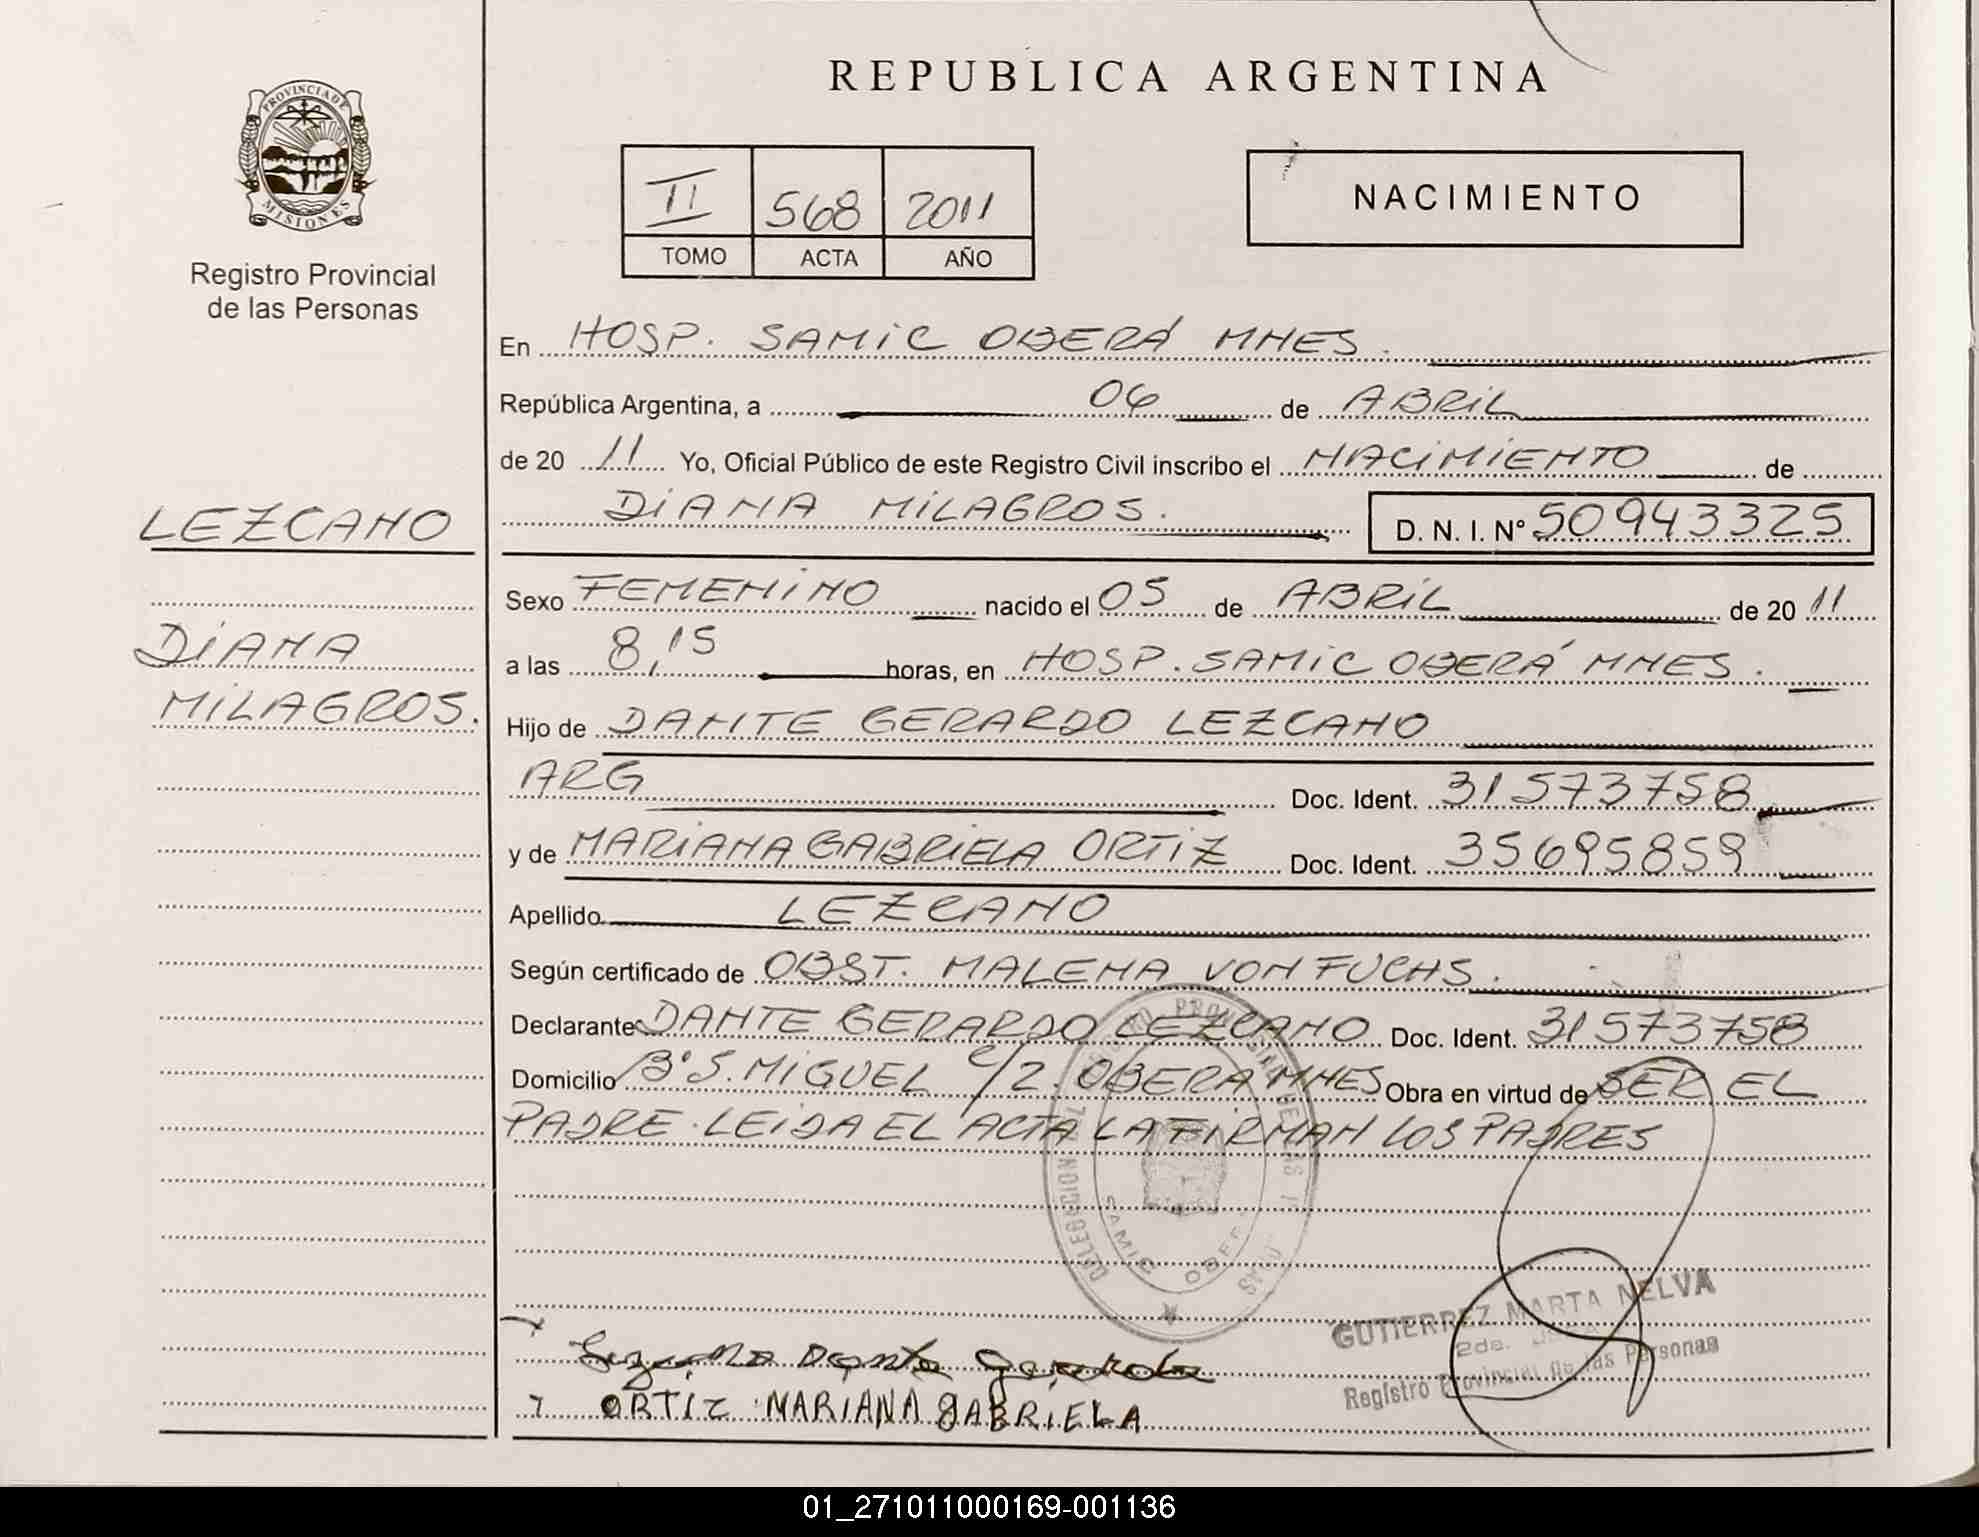 PROVINCIA DE
MISIONES
Registro Provincial
de las Personas
LEZCANO
DIANA
MILAGROS.
REPUBLICA ARGENTINA
II 568 2011
TOMO ACTA AÑO
NACIMIENTO
En HOSP. SAMIC OBERÁ MNES.
República Argentina, a 06 de ABRIL
de 20 11 Yo, Oficial Público de este Registro Civil inscribo el NACIMIENTO de
DIANA MILAGROS. D. N. I. Nº 50943325
Sexo FEMENINO nacido el 05 de ABRIL de 20 11
a las 8,15 horas, en HOSP. SAMIC OBERÁ MNES.
Hijo de DANTE GERARDO LEZCANO
ARG Doc. Ident. 31573758
y de MARIANA GABRIELA ORTIZ Doc. Ident. 35695859
Apellido LEZCANO
Según certificado de OBST. MALENA VON FUCHS.
Declarante DANTE GERARDO LEZCANO Doc. Ident. 31573758
Domicilio Bº S. MIGUEL C/2. OBERA MNES Obra en virtud de SER EL
PADRE. LEIDA EL ACTA LA FIRMAN LOS PADRES
DELEGACION
SAMIC OBERA
Lezcano Dante Gerardo
ORTIZ MARIANA GABRIELA
GUTIERREZ MARTA NELVA
2da.
Registro Provincial de las Personas
01_271011000169-001136